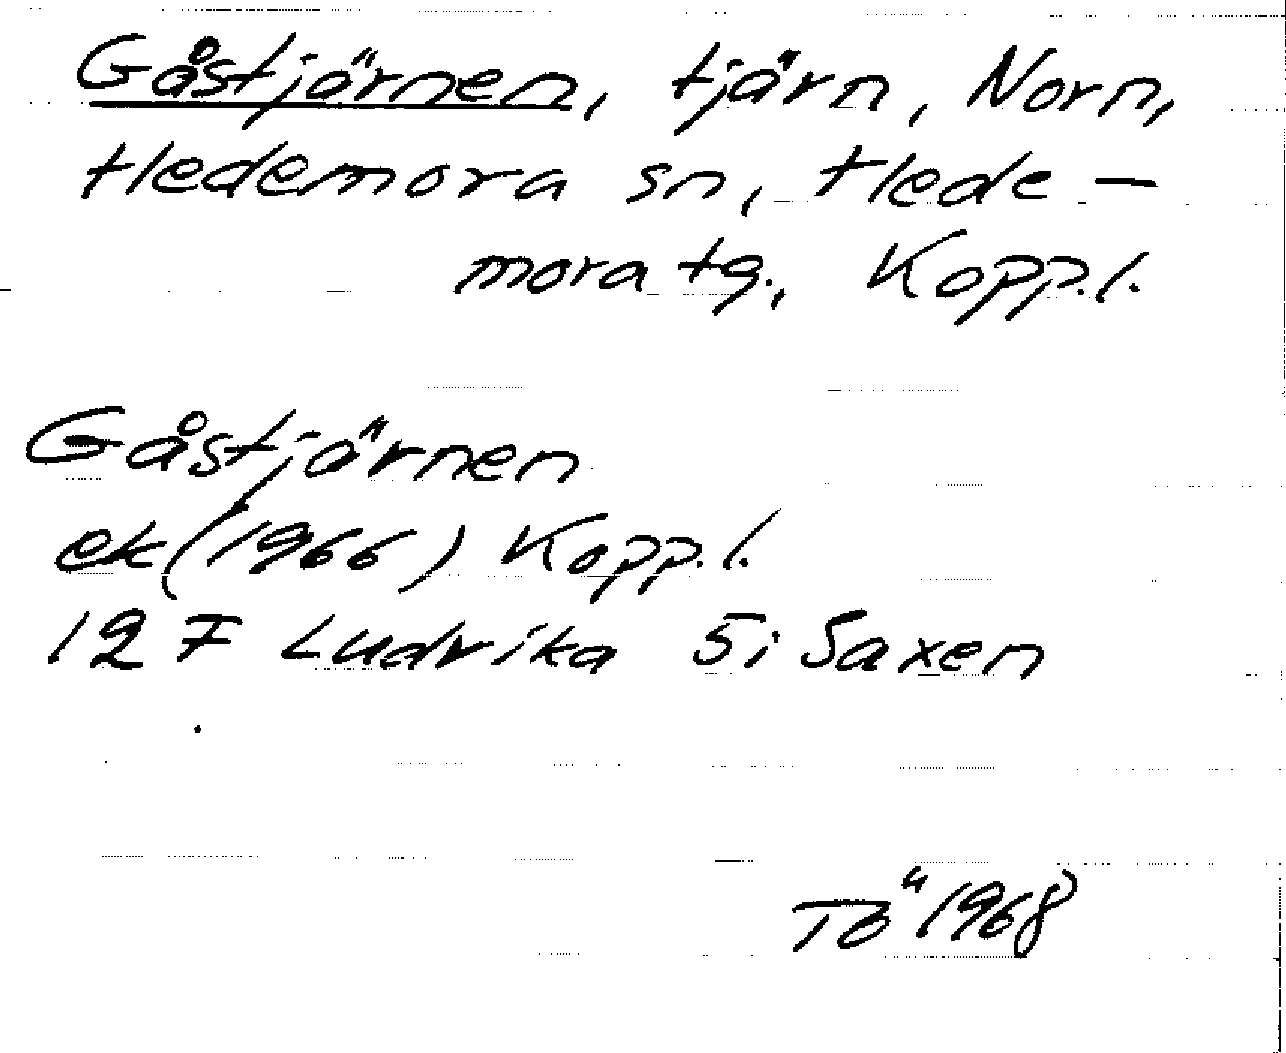 Gåstjärnen, tjärn, Norn,
Hedemora sn, Hede-
mora tg., Kopp.l.
Gåstjärnen
ek (1966) Kopp.l.
12 F Ludvika 5i Saxen
TÖ 1968